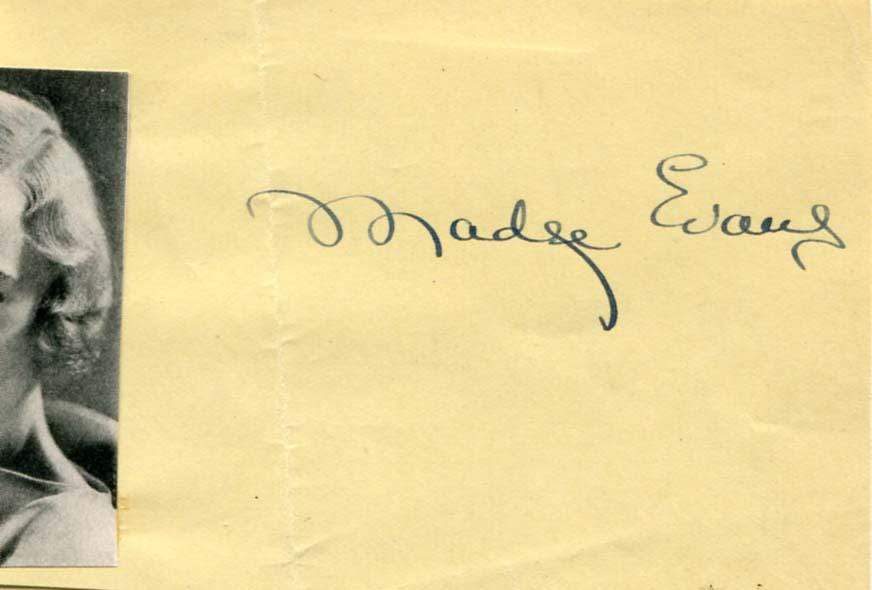 Madge Evans